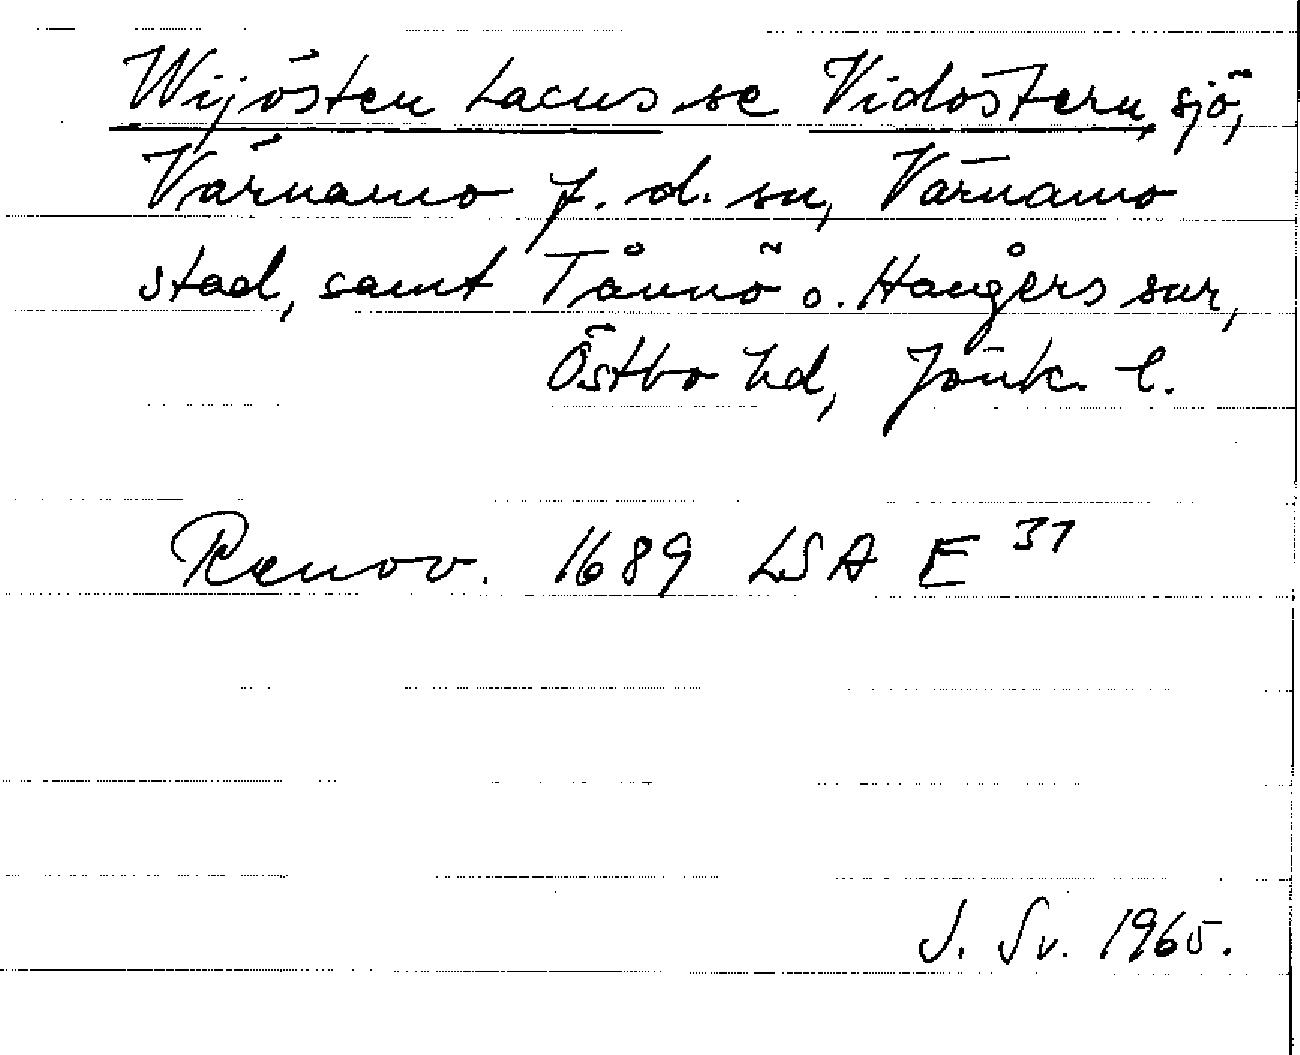 Wijösten Lacus se Vidöstern, sjö,
Värnamo f. d. sn, Värnamo
stad, samt Tånnö o. Hångers snr,
Östbo hd, Jönk. l.
Renov. 1689 LSA E 31
J. Sv. 1965.